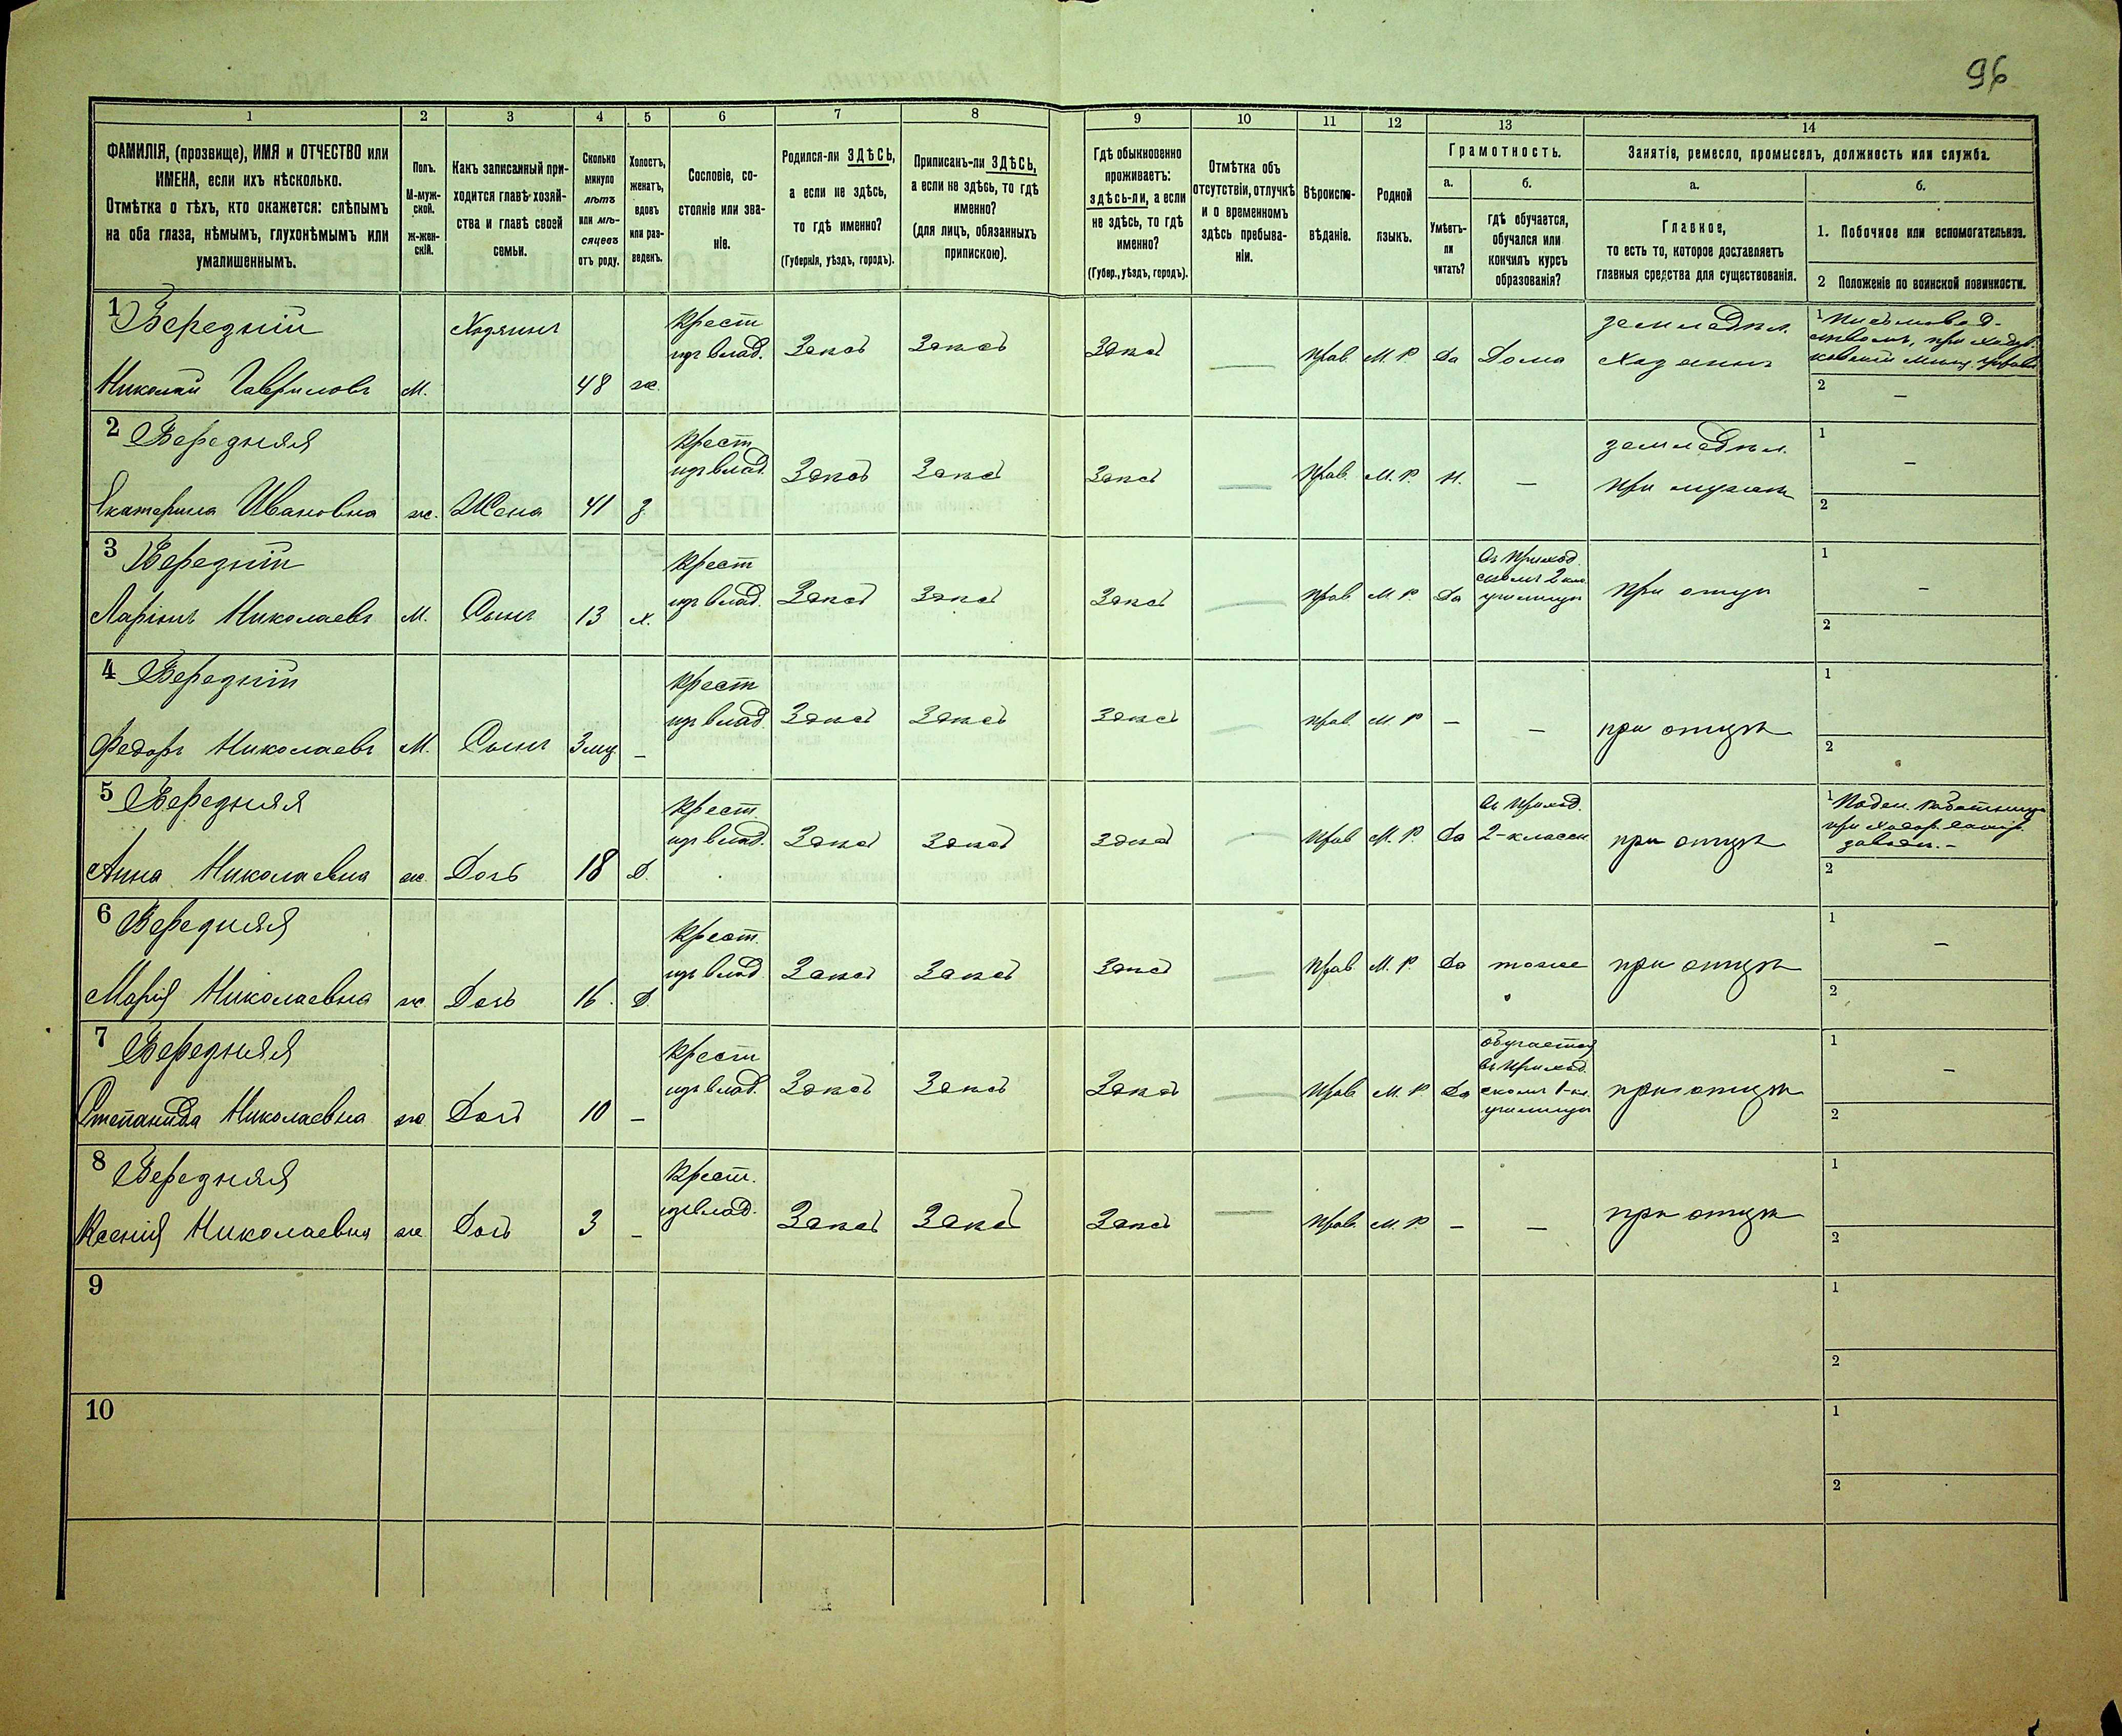 96
1 2 3 4 5 6 7 8 9 10 11 12 13 14
ФАМИЛІЯ, (прозвище), ИМЯ и ОТЧЕСТВО или
ИМЕНА, если ихъ нѣсколько.
Отмѣтка о тѣхъ, кто окажется: слѣпымъ
на оба глаза, нѣмымъ, глухонѣмымъ или
умалишеннымъ.
Полъ.
М-муж-
ской.
ж-жен-
скій.
Какъ записанный при-
ходится главѣ хозяй-
ства и главѣ своей
семьи.
Сколько
минуло
лѣтъ
или мѣ-
сяцевъ
отъ роду.
Холостъ,
женатъ,
вдовъ
или раз-
веденъ.
Сословіе, со-
стояніе или зва-
ніе.
Родился-ли ЗДѢСЬ,
а если не здѣсь,
то гдѣ именно?
(Губернія, уѣздъ, городъ).
Приписанъ-ли ЗДѢСЬ,
а если не здѣсь, то гдѣ
именно?
(для лицъ, обязанныхъ
припискою).
Гдѣ обыкновенно
проживаетъ:
здѣсь-ли, а если
не здѣсь, то гдѣ
именно?
(Губер., уѣздъ, городъ).
Отмѣтка объ
отсутствіи, отлучкѣ
и о временномъ
здѣсь пребыва-
ніи.
Вѣроиспо-
вѣданіе.
Родной
языкъ.
Грамотность.
а.
Умѣетъ-
ли
читать?
б.
гдѣ обучается,
обучался или
кончилъ курсъ
образованія?
Занятіе, ремесло, промыселъ, должность или служба.
а.
Главное,
то есть то, которое доставляетъ
главныя средства для существованія.
б.
1. Побочное или вспомогательное.
2 Положеніе по воинской повинности.
1 Бередній
Николай Гавриловъ
М.
Хозяинъ
48
ж.
Крест
изъ влад.
Здѣсь
Здѣсь
Здѣсь
—
Прав.
М. Р.
Да
Дома
земледѣл.
Хозяинъ
1
при
2 —
2 Бередняя
Екатерина Ивановна
ж.
Жена
41
з
Крест
изъ влад.
Здѣсь
Здѣсь
Здѣсь
—
Прав.
М. Р.
Н.
—
земледѣл.
При мужѣ
1 —
2
3 Бередній
Ларіонъ Николаевъ
М.
Сынъ
13
х.
Крест
изъ влад.
Здѣсь
Здѣсь
Здѣсь
—
Прав
М. Р.
Да
Въ Приход
скомъ 2 кл.
училищѣ
При отцѣ
1 —
2
4 Бередній
Федоръ Николаевъ
М.
Сынъ
3 мц
—
Крест
изъ влад
Здѣсь
Здѣсь
Здѣсь
—
Прав.
М. Р
—
—
при отцѣ
1
2
5 Бередняя
Анна Николаевна
ж.
Дочь
18
Д.
Крест.
изъ влад.
Здѣсь
Здѣсь
Здѣсь
—
Прав
М. Р.
Да
Въ Приход.
2-класен.
при отцѣ
1 Поден. работница
при сахар.
заводѣ. —
2
6 Бередняя
Марія Николаевна
ж
Дочь
16.
Д.
Крест.
изъ влад
Здѣсь
Здѣсь
Здѣсь
—
Прав
М. Р.
Да
тоже
при отцѣ
1 —
2
7 Бередняя
Степанида Николаевна
ж
Дочь
10
—
Крест
изъ влад.
Здѣсь
Здѣсь
Здѣсь
—
Прав
М. Р
Да
обучается
въ Приход.
скомъ 1-кл.
училищѣ
при отцѣ
1 —
2
8 Бередняя
Ксенія Николаевна
ж
Дочь
3
—
Крест.
изъ влад.
Здѣсь
Здѣсь
Здѣсь
—
Прав.
М. Р.
—
—
при отцѣ
1
2
9
1
2
10
1
2